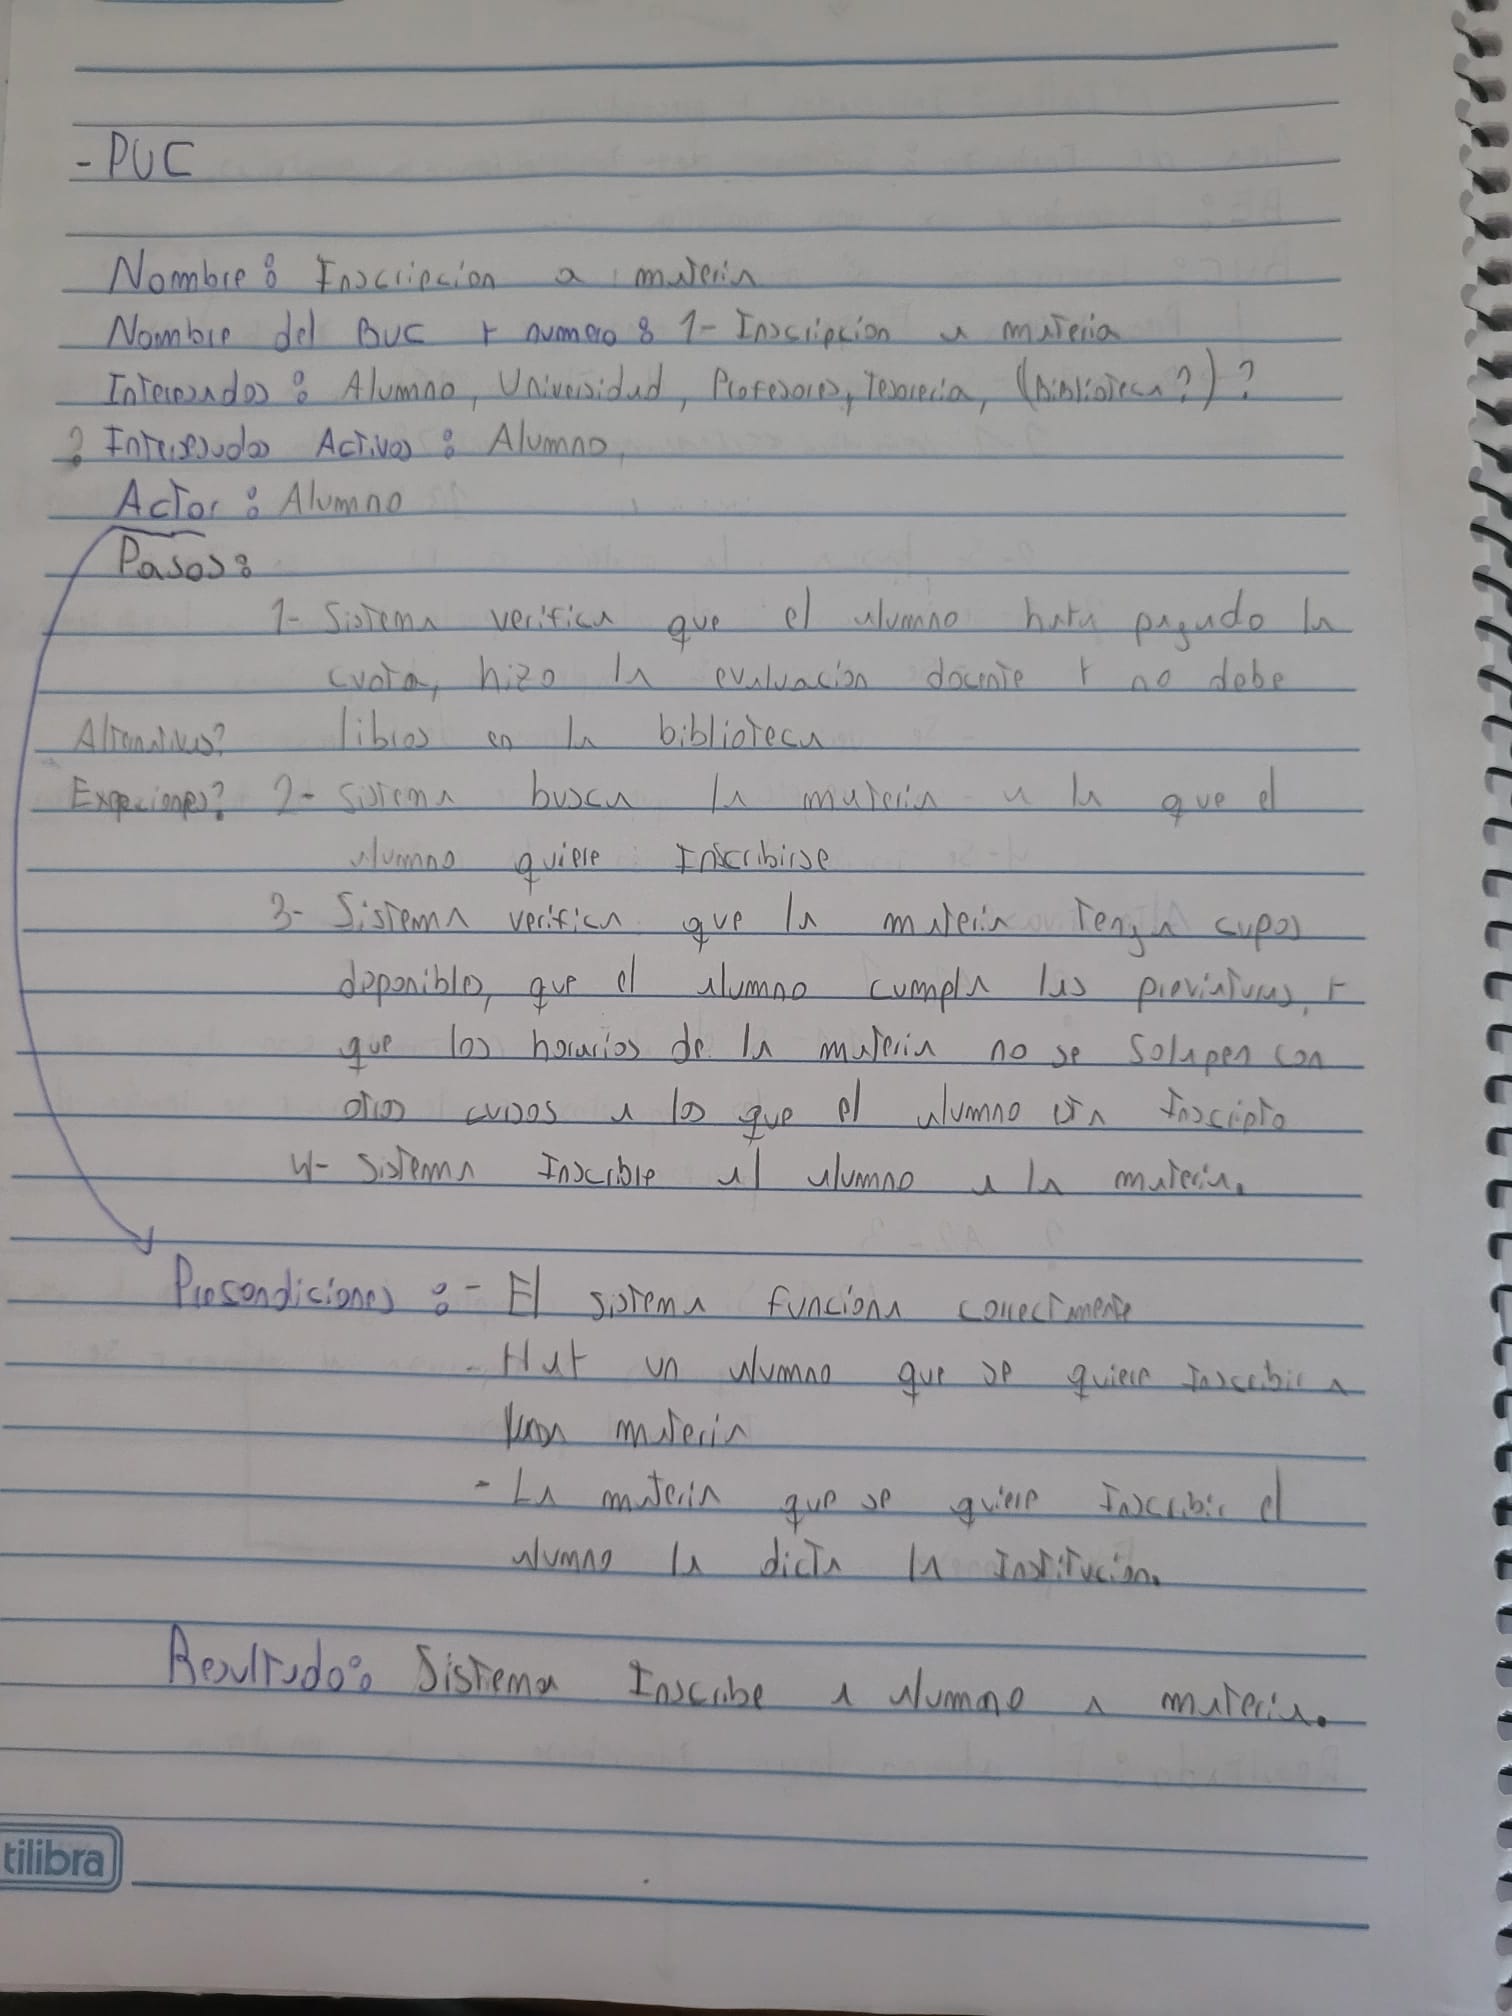 - PUC
Nombre: Inscripcion a materia
Nombre del BUC y numero: 1- Inscripcion a materia
Interesados: Alumno, Universidad, Profesores, Tesoreria, (Biblioteca?)?
? Interesados Activos: Alumno,
Actor: Alumno
Pasos:
1- Sistema verifica que el alumno haya pagado la
cuota, hizo la evaluación docente y no debe
Alternativas? libros en la biblioteca
Exepciones? 2- Sistema busca la materia a la que el
alumno quiere Inscribirse
3- Sistema verifica que la materia tenga cupos
disponibles, que el alumno cumpla las previaturas, y
que los horarios de la materia no se solapen con
otros cursos a los que el alumno esta Inscripto
4- Sistema Inscribe al alumno a la materia.
Precondiciones: - El sistema funciona correctamente
- Hay un alumno que se quiere Inscribir a
una materia
- La materia que se quiere Inscribir el
alumno la dicta la Institución.
Resultado: Sistema Inscribe a alumno a materia.
tilibra